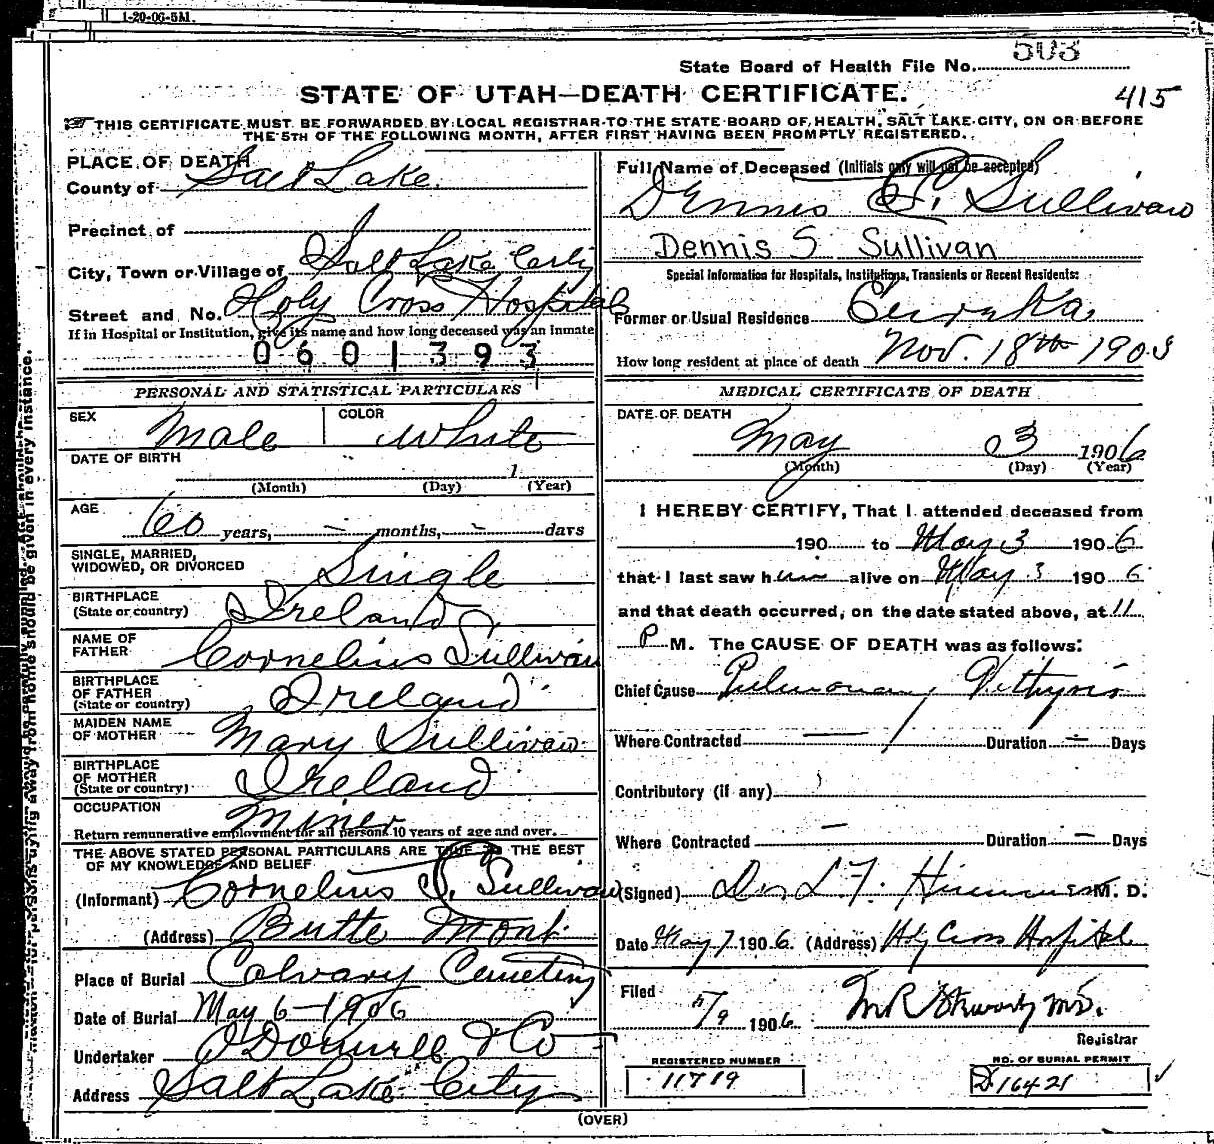 1-20-06-5M.
State Board of Health File No. 503
STATE OF UTAH—DEATH CERTIFICATE.
415
THIS CERTIFICATE MUST BE FORWARDED BY LOCAL REGISTRAR TO THE STATE BOARD OF HEALTH, SALT LAKE CITY, ON OR BEFORE
THE 5TH OF THE FOLLOWING MONTH, AFTER FIRST HAVING BEEN PROMPTLY REGISTERED.
PLACE OF DEATH
County of Salt Lake
Precinct of
City, Town or Village of Salt Lake City
Street and No. Holy Cross Hospital
If in Hospital or Institution, give its name and how long deceased was an inmate
0601393
PERSONAL AND STATISTICAL PARTICULARS
SEX Male COLOR White
DATE OF BIRTH
1
(Month) (Day) (Year)
AGE 60 years, — months, — days
SINGLE, MARRIED,
WIDOWED, OR DIVORCED Single
BIRTHPLACE
(State or country) Ireland
NAME OF
FATHER Cornelius Sullivan
BIRTHPLACE
OF FATHER
(State or country) Ireland
MAIDEN NAME
OF MOTHER Mary Sullivan
BIRTHPLACE
OF MOTHER
(State or country) Ireland
OCCUPATION Miner
Return remunerative employment for all persons 10 years of age and over.
THE ABOVE STATED PERSONAL PARTICULARS ARE TRUE TO THE BEST
OF MY KNOWLEDGE AND BELIEF
(Informant) Cornelius S. Sullivan
(Address) Butte Mont.
Place of Burial Calvary Cemetery
Date of Burial May 6—1906
Undertaker O'Donnell & Co
Address Salt Lake City
Full Name of Deceased (Initials only will not be accepted)
Dennis S. Sullivan
Dennis S Sullivan
Special Information for Hospitals, Institutions, Transients or Recent Residents:
Former or Usual Residence Eureka
How long resident at place of death Nov. 18th 1903
MEDICAL CERTIFICATE OF DEATH
DATE OF DEATH
May 03 1906
(Month) (Day) (Year)
I HEREBY CERTIFY, That I attended deceased from
190 to May 3 1906
that I last saw him alive on May 3 1906
and that death occurred, on the date stated above, at 11
P M. The CAUSE OF DEATH was as follows:
Chief Cause Pulmonary
Where Contracted — Duration — Days
Contributory (if any)
Where Contracted — Duration — Days
(Signed) M. D.
Date May 7 1906 (Address) Holy Cross Hospital
Filed 5/9 1906 M.D.
Registrar
REGISTERED NUMBER
11719
NO. OF BURIAL PERMIT
D. 16421
(OVER)